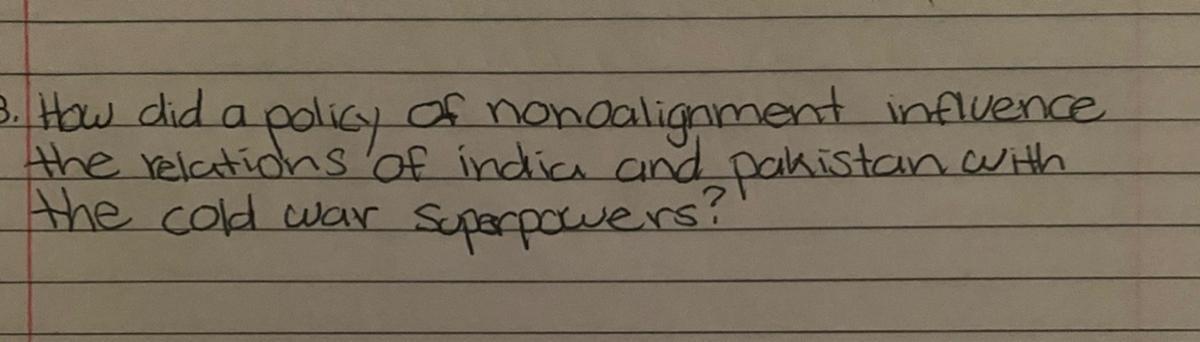 3. How did a policy of nonoalignment influence
the relations of india and pakistan with
the cold war superpowers?